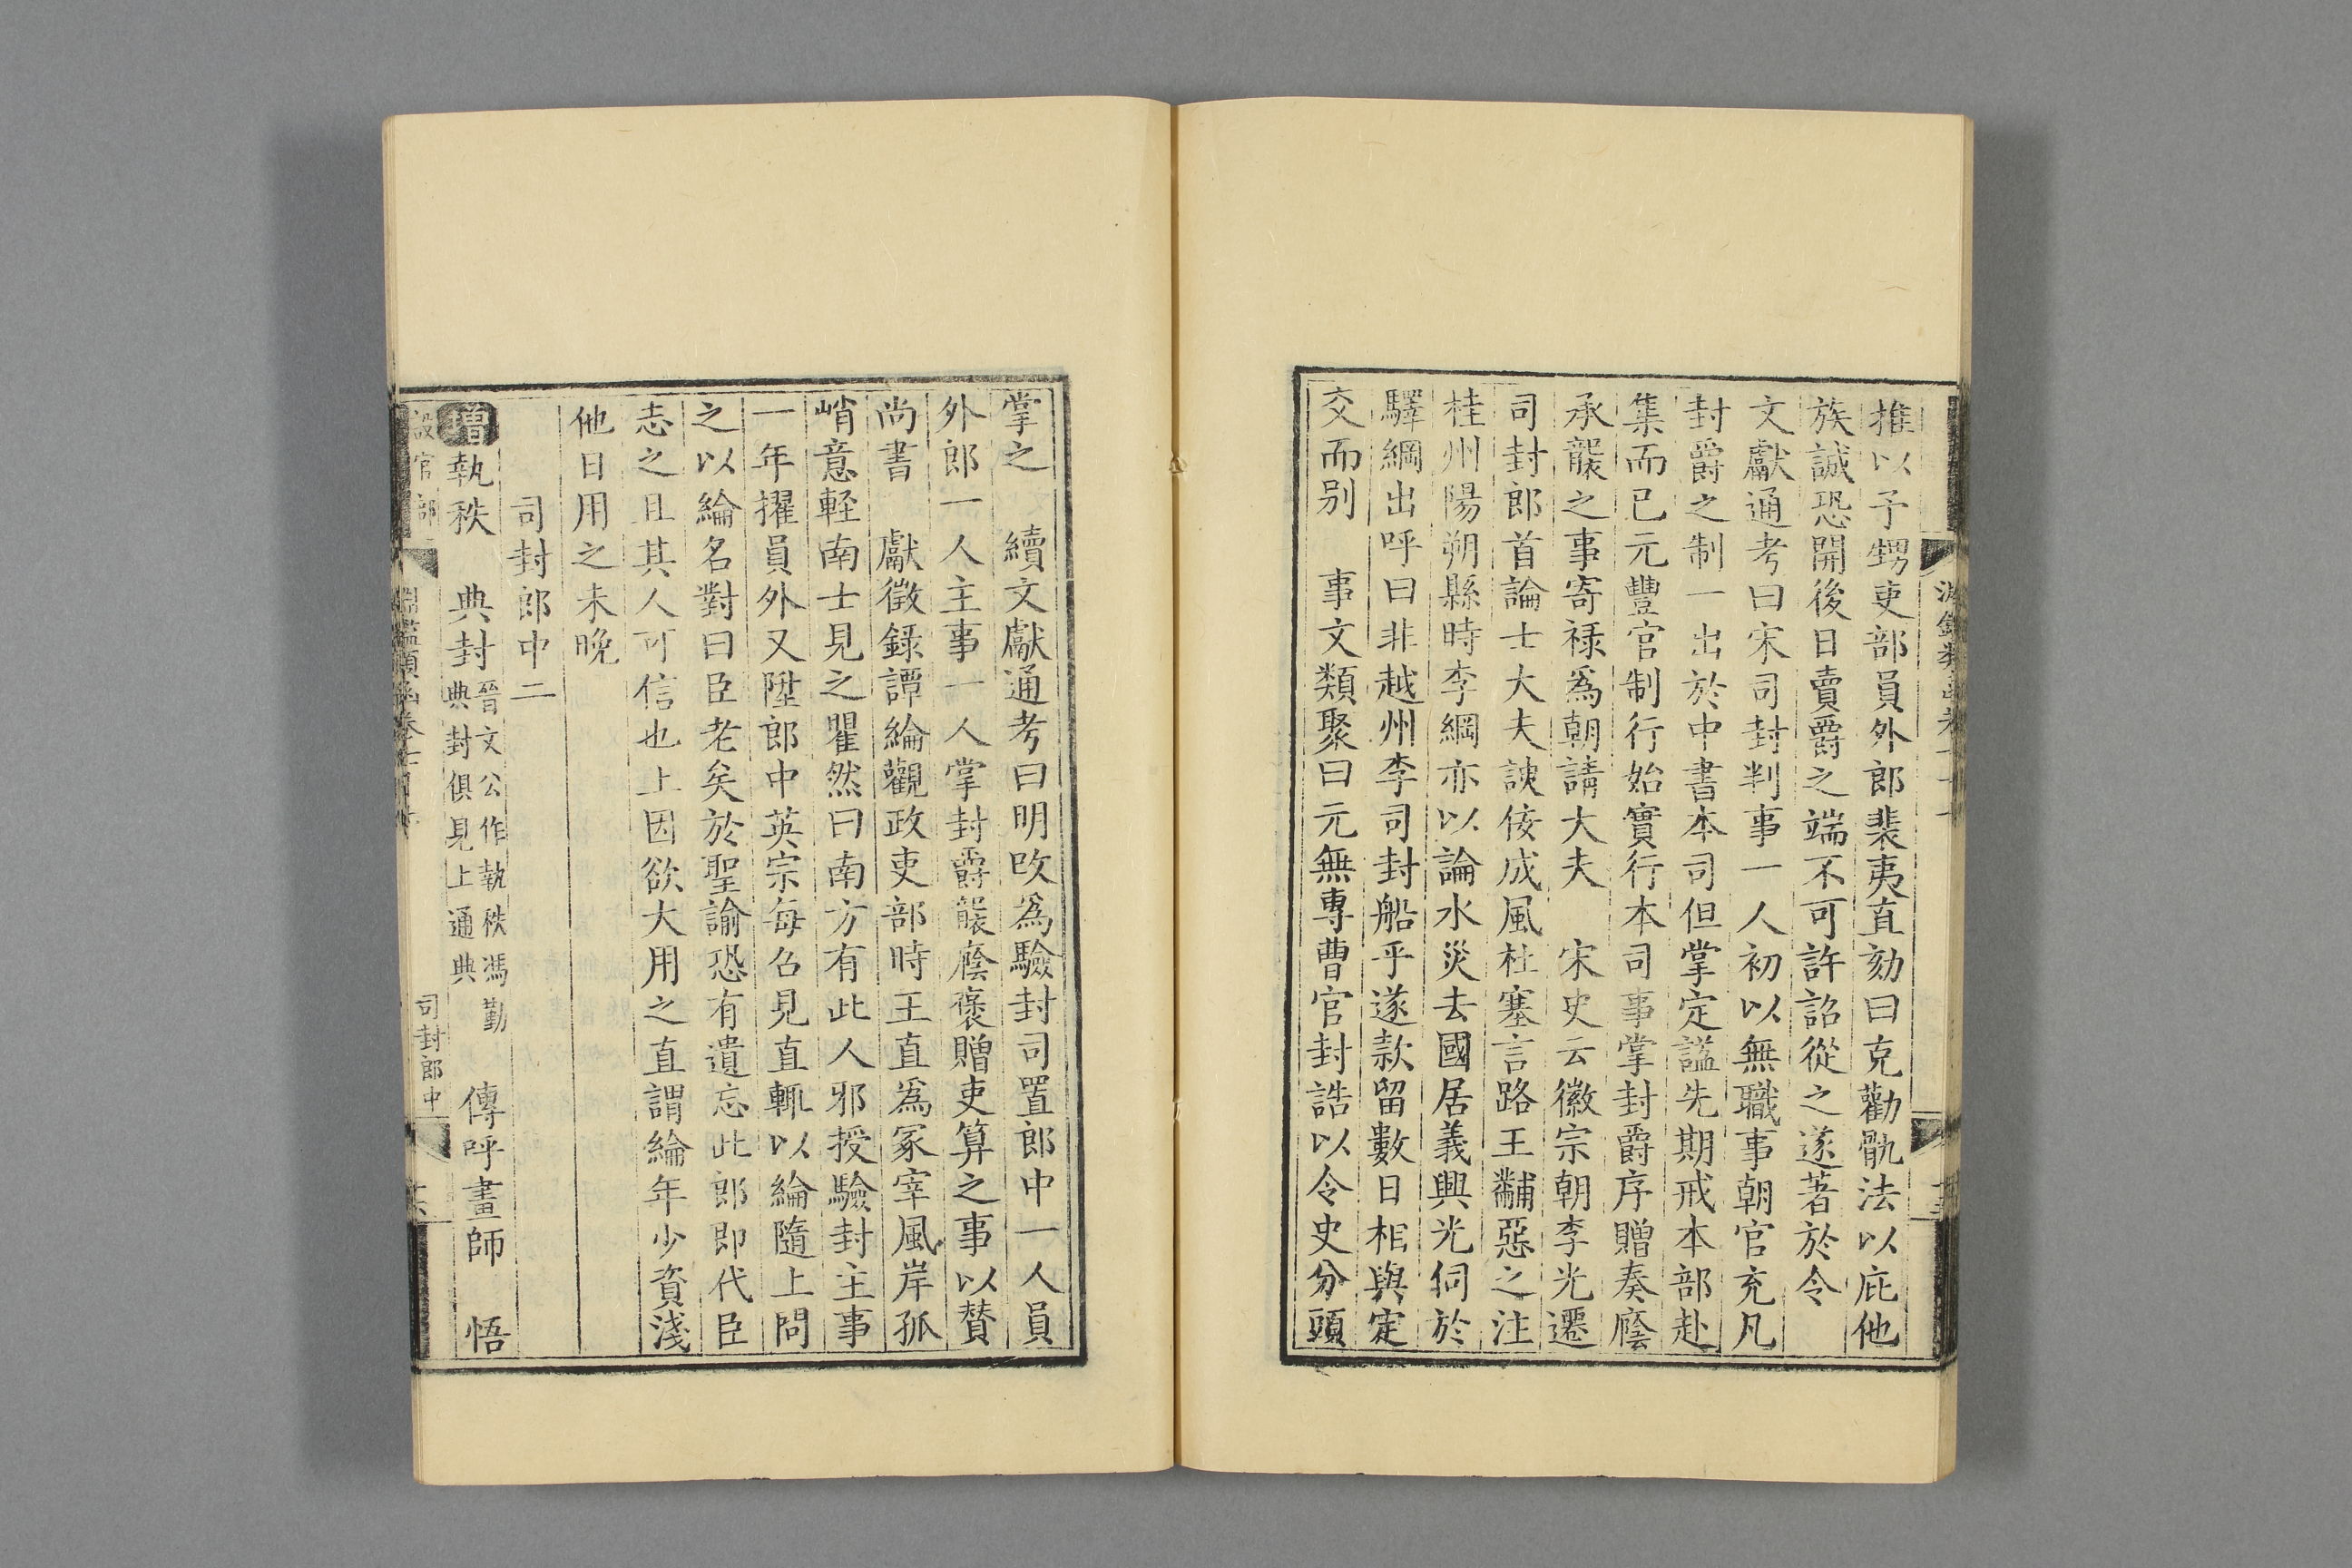 推以子甥吏部員外郎裴夷直劾曰克勤骫法以庇他
族誠恐開後日賣爵之端不可許詔從之遂著於令
文獻通考曰宋司封判事一人初以無職事朝官充凡
封爵之制一出於中書本司但掌定諡先期戒本部赴
集而已元豐官制行始實行本司事掌封爵序贈奏廕
承襲之事寄祿爲朝請大夫　宋史云徽宗朝李光遷
司封郎首論士大夫諛佞成風杜塞言路王黼惡之注
桂州陽朔縣時李綱亦以論水災去國居義興光伺於
驛綱出呼曰非越州李司封船乎遂款留數日相與定
交而别　事文類聚曰元無專曹官封誥以令史分頭
掌之　續文獻通考曰明攺爲驗封司置郎中一人員
外郎一人主事一人掌封爵襲廕褒贈吏算之事以賛
尚書　獻徵錄譚綸觀政吏部時王直爲冢宰風岸孤
峭意輕南士見之瞿然曰南方有此人邪授驗封主事
一年擢員外又陞郎中英宗每召見直輒以綸隨上問
之以綸名對曰臣老矣於聖諭恐有遺忘此郎即代臣
志之且其人可信也上因欲大用之直謂綸年少資淺
他日用之未晚
司封郎中二
增執秩　典封晉文公作執秩馮勤典封俱見上通典　傳呼畫師　悟
設官部　淵鑑類函卷七十　司封郎中